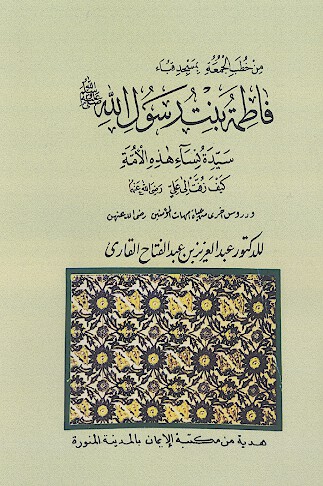 من خطب الجمعة بمسجد قباء
فاطمة بنت رسول الله ﷺ
سيدة نساء هذه الأمة
كيف زفت إلى علي رضي الله عنهما
ودروس أخرى من حياة أمهات المؤمنين رضي الله عنهن
للدكتور عبد العزيز بن عبد الفتاح القارئ
هدية من مكتبة الإيمان بالمدينة المنورة